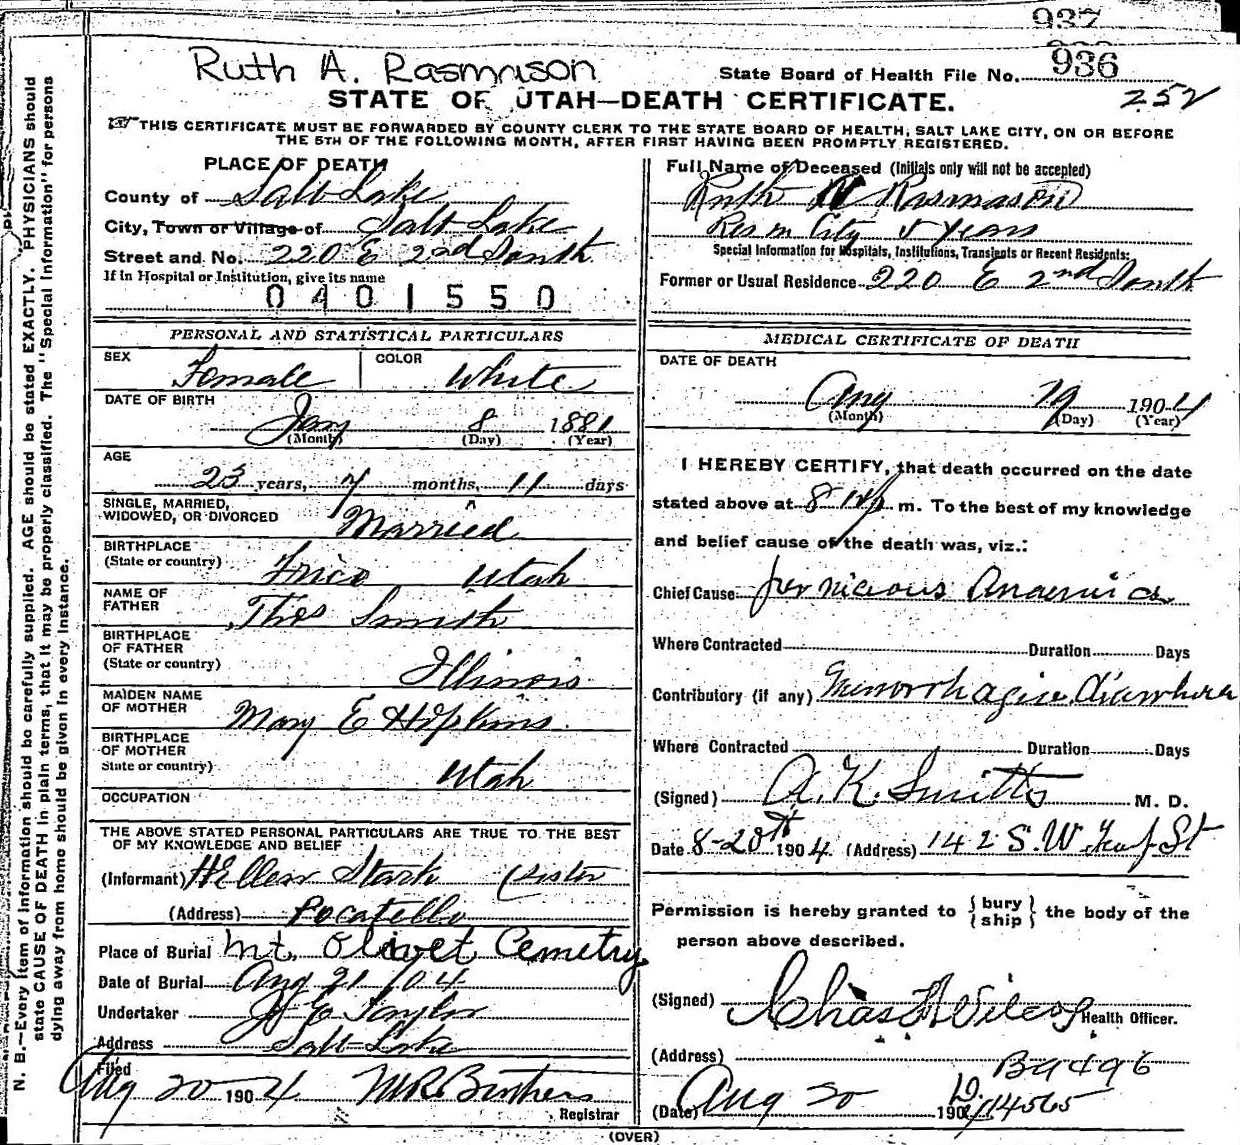 937
936
Ruth A. Rasmason
State Board of Health File No. 936
252
STATE OF UTAH—DEATH CERTIFICATE.
THIS CERTIFICATE MUST BE FORWARDED BY COUNTY CLERK TO THE STATE BOARD OF HEALTH, SALT LAKE CITY, ON OR BEFORE
THE 5TH OF THE FOLLOWING MONTH, AFTER FIRST HAVING BEEN PROMPTLY REGISTERED.
N. B.—Every item of information should be carefully supplied. AGE should be stated EXACTLY. PHYSICIANS should
state CAUSE OF DEATH in plain terms, that it may be properly classified. The "Special Information" for persons
dying away from home should be given in every instance.
PLACE OF DEATH
County of Salt Lake
City, Town or Village of Salt Lake
Street and No. 220 E 2nd South
If in Hospital or Institution, give its name
0401550
PERSONAL AND STATISTICAL PARTICULARS
SEX Female COLOR White
DATE OF BIRTH
Jany 8 1881
(Month) (Day) (Year)
AGE
23 years, 7 months, 11 days
SINGLE, MARRIED,
WIDOWED, OR DIVORCED Married
BIRTHPLACE
(State or country) Frisco Utah
NAME OF
FATHER Thos Smith
BIRTHPLACE
OF FATHER
(State or country) Illinois
MAIDEN NAME
OF MOTHER Mary E Hopkins
BIRTHPLACE
OF MOTHER
State or country) Utah
OCCUPATION
THE ABOVE STATED PERSONAL PARTICULARS ARE TRUE TO THE BEST
OF MY KNOWLEDGE AND BELIEF
(Informant) Hellen Stark (sister
(Address) Pocatello
Place of Burial Mt. Olivet Cemetry
Date of Burial Aug 21/04
Undertaker Taylor
Address Salt Lake
Filed
Aug 20 1904
Registrar
Full Name of Deceased (Initials only will not be accepted)
Ruth Rasmason
Res in City 5 Years
Special Information for Hospitals, Institutions, Transients or Recent Residents:
Former or Usual Residence 220 E 2nd South
MEDICAL CERTIFICATE OF DEATH
DATE OF DEATH
Aug 19 1904
(Month) (Day) (Year)
I HEREBY CERTIFY, that death occurred on the date
stated above at 8 m. To the best of my knowledge
and belief cause of the death was, viz.:
Chief Cause: pernicious Anaemia
Where Contracted Duration Days
Contributory (if any) diarrhoea
Where Contracted Duration Days
(Signed) A. K. Smith M. D.
Date 8-20th 1904 (Address) 142 S. W. Temp St
Permission is hereby granted to { bury / ship } the body of the
person above described.
(Signed) Chas Wilcox Health Officer.
(Address)
B9496
(Date) Aug 20 190
D.
14565
(OVER)